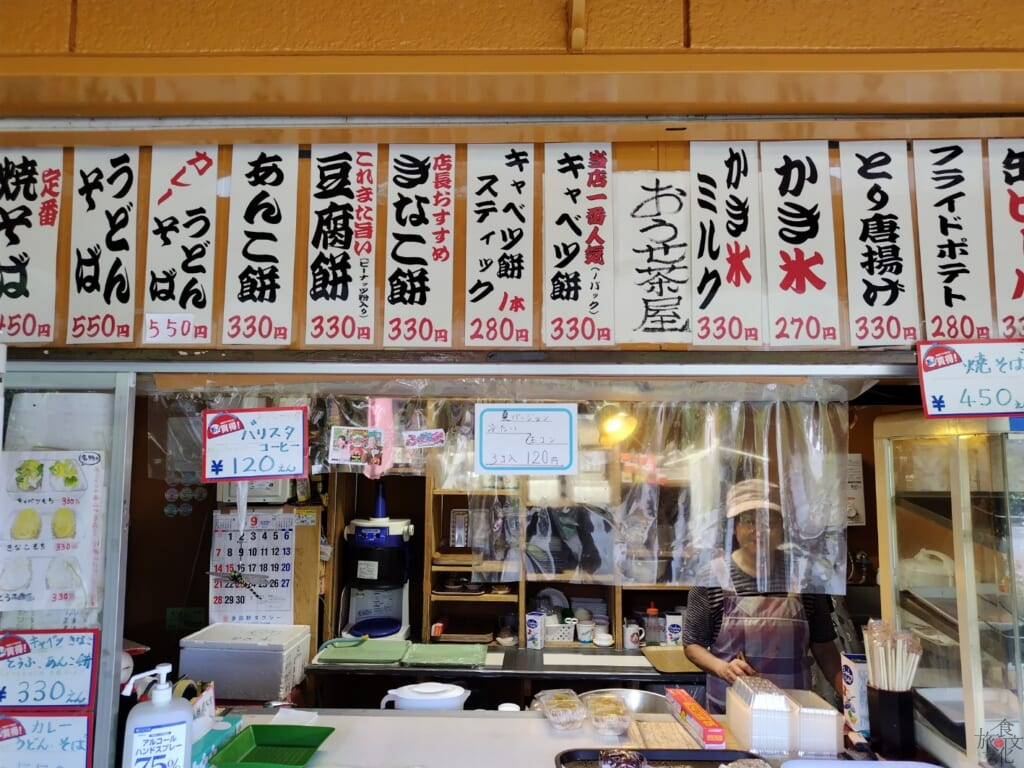 定番
焼そば
450円
うどん
そば
550円
カレー
うどん
そば
550円
あんこ餅
330円
これまた旨い
(ピーナッツ粉入り)
豆腐餅
330円
店長おすすめ
きなこ餅
330円
キャベツ餅
スティック
1本
280円
当店一番人気
(1パック)
キャベツ餅
330円
おうせ茶屋
かき氷
ミルク
330円
かき氷
270円
とり唐揚げ
330円
フライドポテト
280円
お買得!
焼そば
¥450えん
お買得!
バリスタ
コーヒー
¥120えん
夏バージョン
冷たい
玉コン
3コ入 120円
9
1 2 3 4 5 6
7 8 9 10 11 12 13
14 15 16 17 18 19 20
21 22 23 24 25 26 27
28 29 30
キャベツもち 330円
きなこもち 330円
330円
キャベツ きなこ
とうふ、あんこ餅
¥330えん
お買得!
カレー
うどん・そば
アルコール
ハンドスプレー
75%
旅食文化